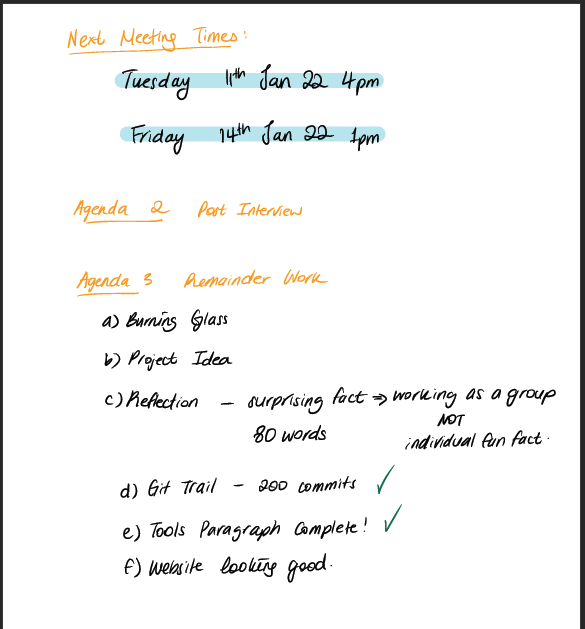 Next Meeting Times:
Tuesday 11th Jan 22 4pm
Friday 14th Jan 22 1pm
Agenda 2 Post Interview
Agenda 3 Remainder Work
a) Burning Glass
b) Project Idea
c) Reflection – surprising fact ⇒ working as a group
NOT
80 words individual fun fact.
d) Git Trail – 200 commits ✓
e) Tools Paragraph Complete! ✓
f) Website looking good.